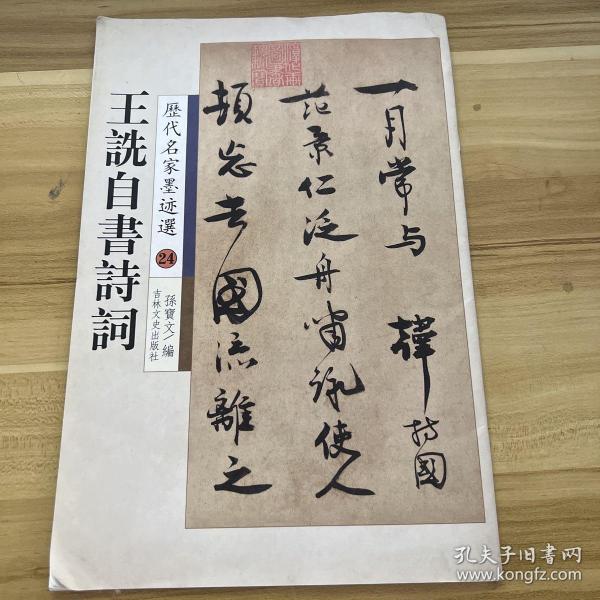 王詵自書詩詞
歷代名家墨迹選
24
孫寶文/編
吉林文史出版社
一月常与 韓持國
范景仁泛舟嘯詠使人
頓忘去國流離之
孔夫子旧书网
www.kongfz.com